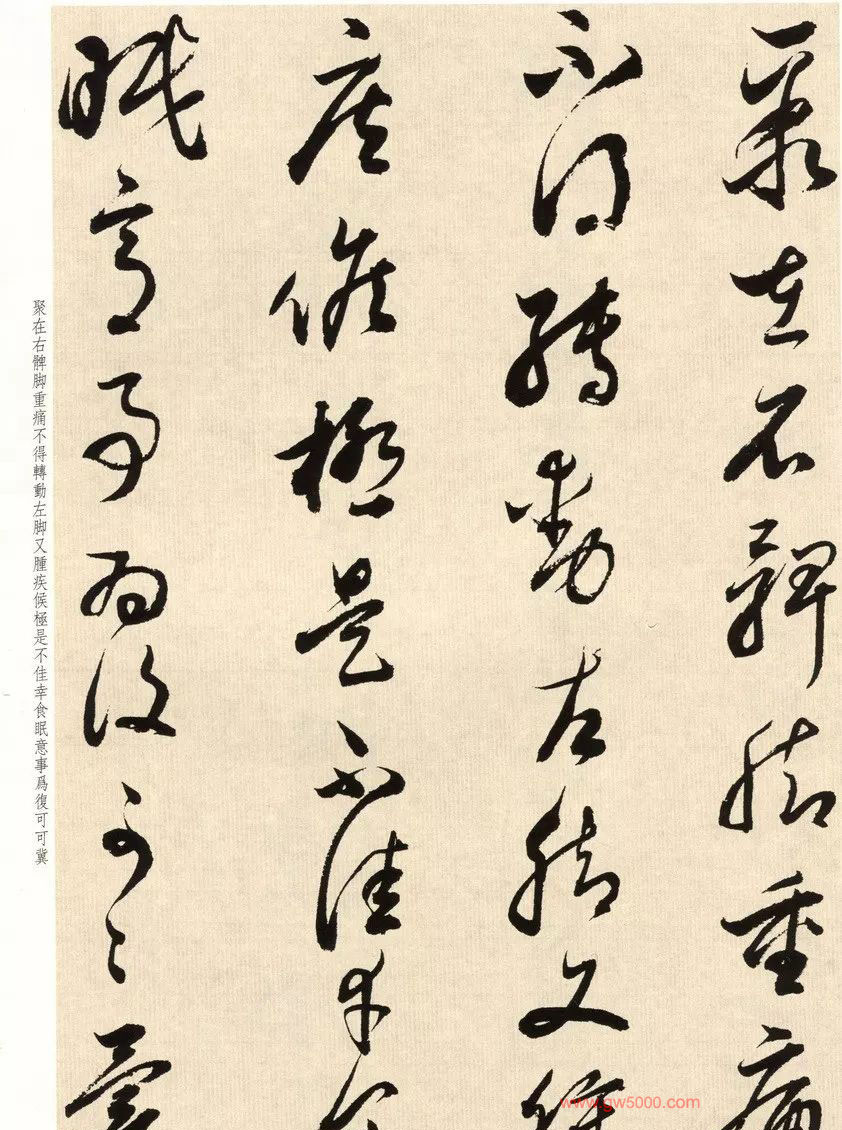 聚在右髀脚重痛
不得轉動左脚又腫
疾候極是不佳幸食
眠意事爲復可〻冀
聚在右髀脚重痛不得轉動左脚又腫疾候極是不佳幸食眠意事爲復可可冀
www.gw5000.com